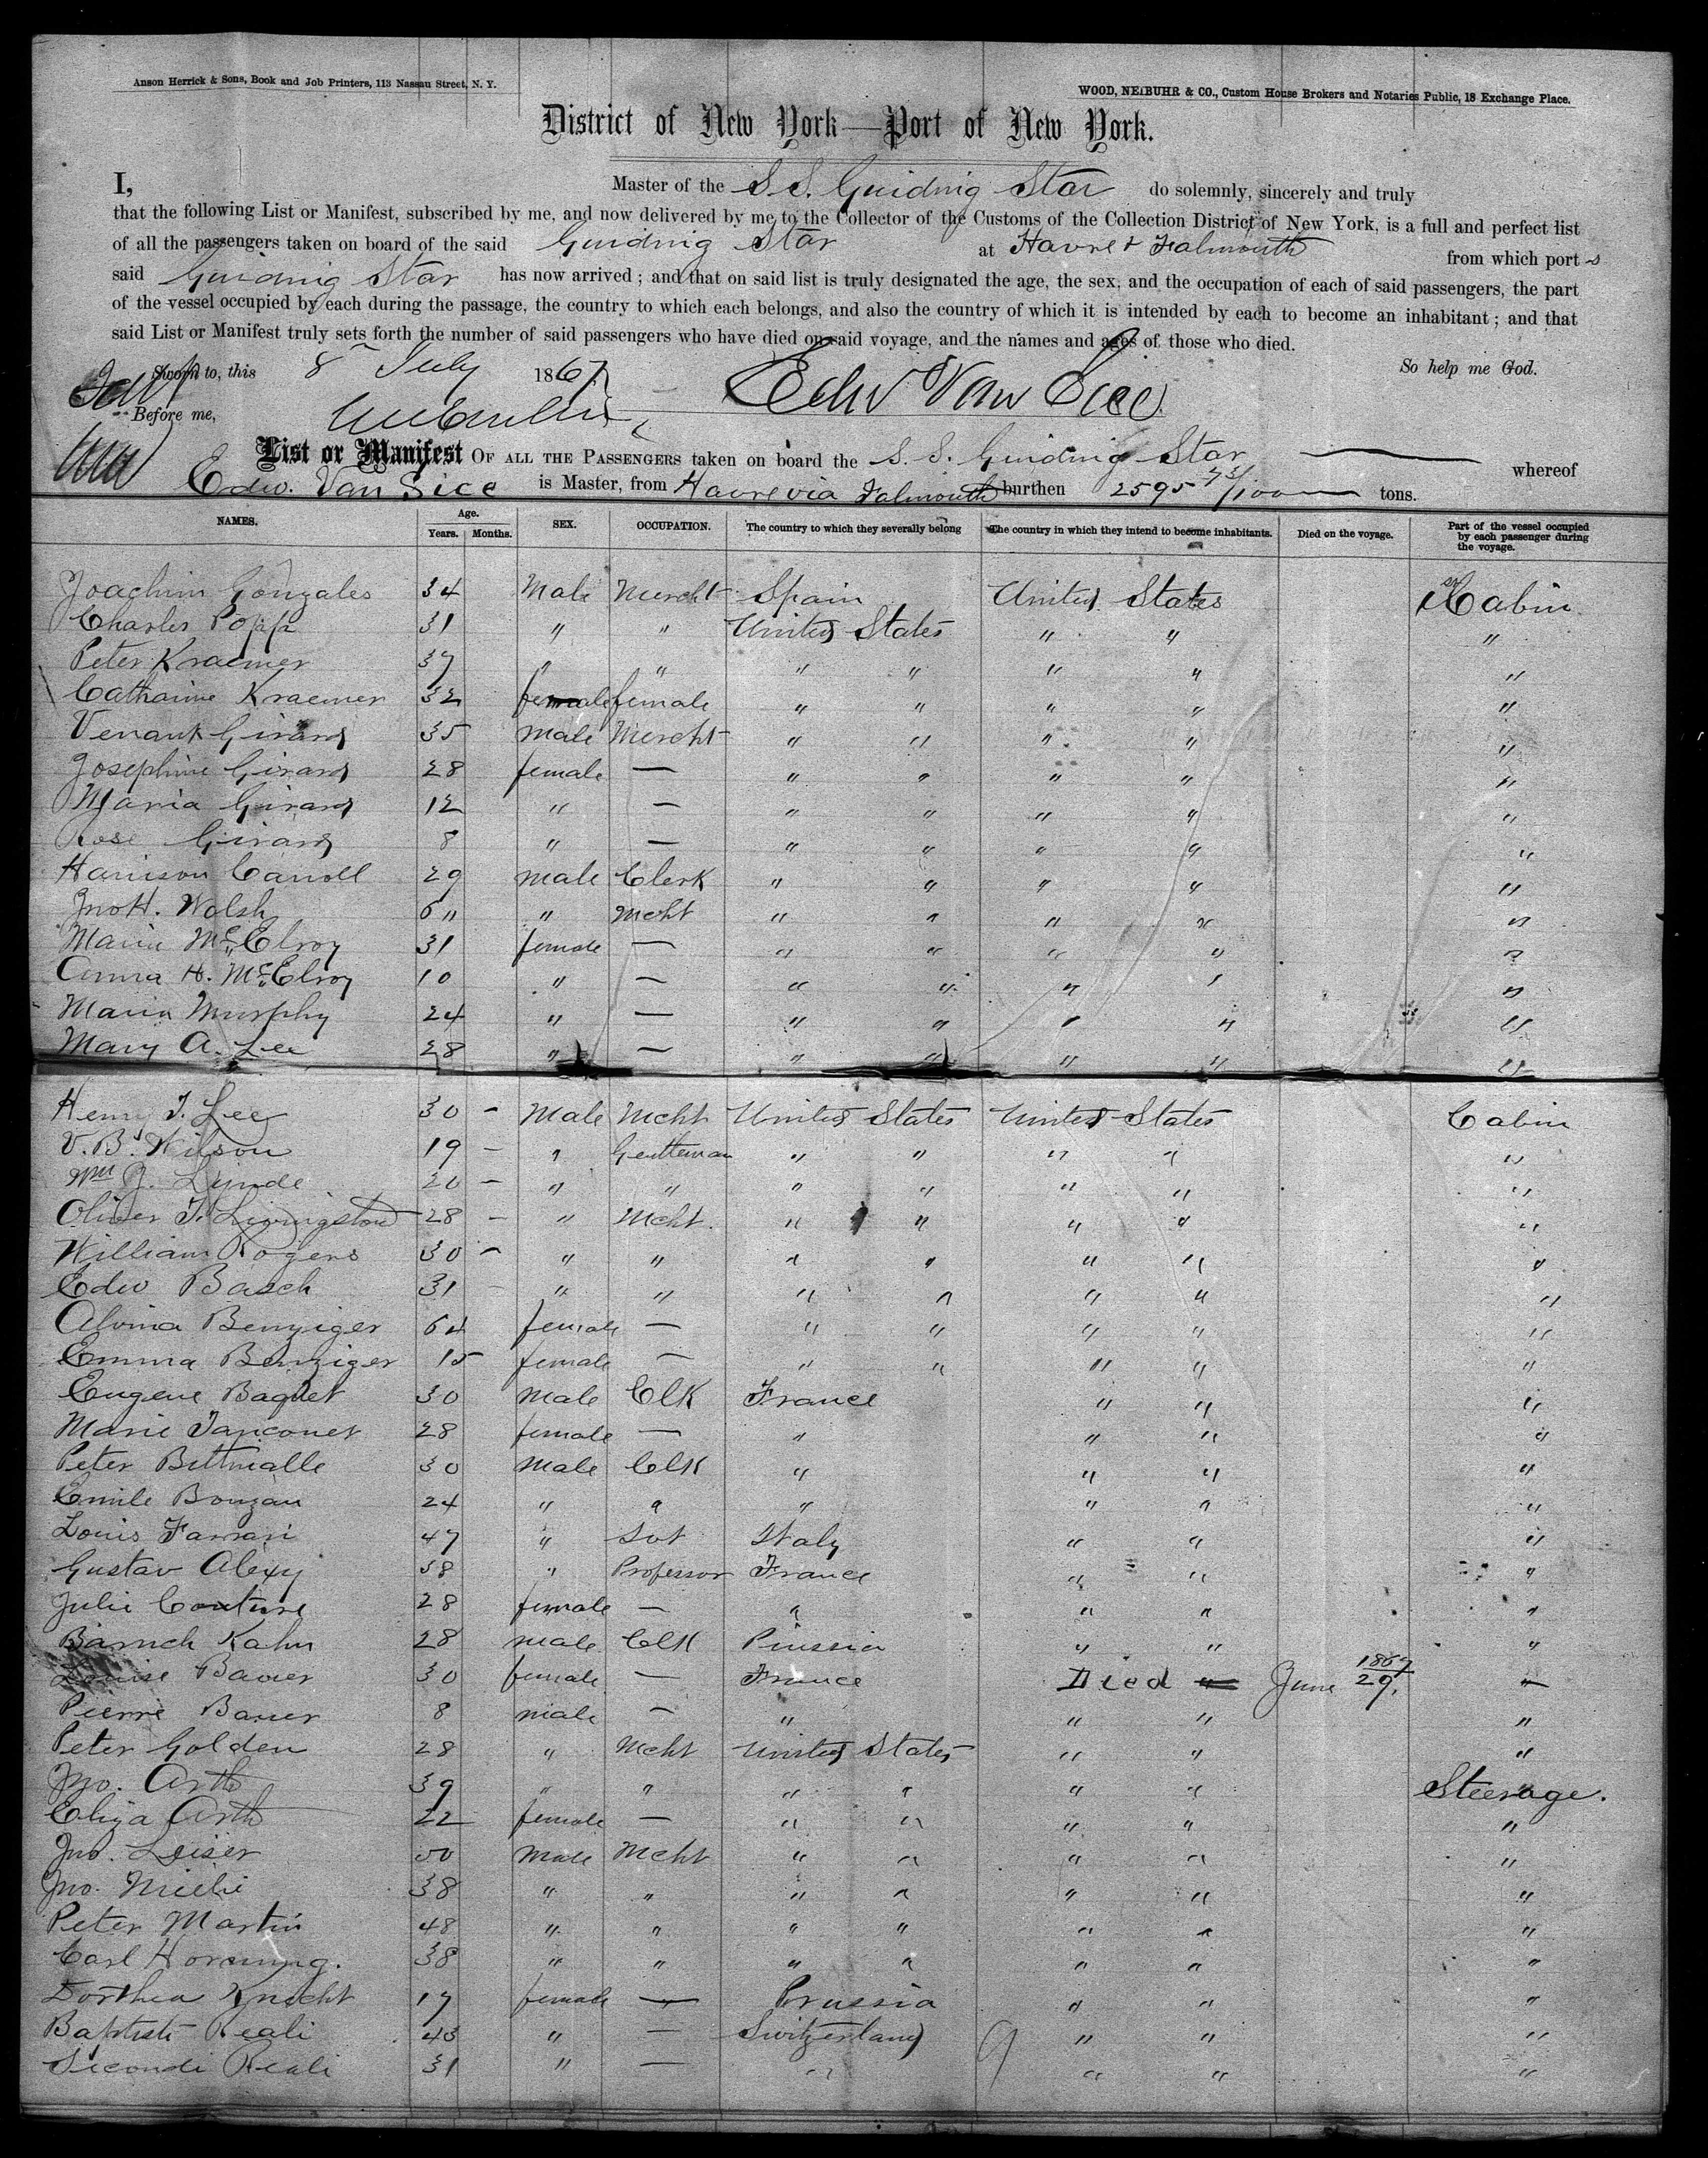 Anson Herrick & Sons, Book and Job Printers, 113 Nassau Street, N. Y.
WOOD, NEIBUHR & CO., Custom House Brokers and Notaries Public, 18 Exchange Place.
District of New York—Port of New York.
I, Master of the S.S. Guiding Star do solemnly, sincerely and truly
that the following List or Manifest, subscribed by me, and now delivered by me to the Collector of the Customs of the Collection District of New York, is a full and perfect list
of all the passengers taken on board of the said Guiding Star at Havre & Falmouth from which port s
said Guiding Star has now arrived; and that on said list is truly designated the age, the sex, and the occupation of each of said passengers, the part
of the vessel occupied by each during the passage, the country to which each belongs, and also the country of which it is intended by each to become an inhabitant; and that
said List or Manifest truly sets forth the number of said passengers who have died on said voyage, and the names and ages of those who died.
Sworn to, this 8 July 1867 So help me God.
Before me, Edw Van Sice
List or Manifest OF ALL THE PASSENGERS taken on board the S. S. Guiding Star whereof
Edw. Van Sice is Master, from Havre via Falmouth burthen 2595 73/100 tons.
NAMES. Age. Years. Months. SEX. OCCUPATION. The country to which they severally belong The country in which they intend to become inhabitants. Died on the voyage. Part of the vessel occupied by each passenger during the voyage.
Joachim Gonzales 34 Male Mercht Spain United States Cabin
Charles Popp 31 " " United States " " "
Peter Kraemer 37 " " " " " " "
Catharine Kraemer 32 female female " " " " "
Girard 35 male Mercht " " " " "
Josephine Girard 28 female — " " " " "
Maria Girard 12 " — " " " " "
Rose Girard 8 " — " " " " "
Harrison Carroll 29 male Clerk " " " " "
Jno H. Walsh " Mcht " " " " "
Maria McElroy 31 female — " " " " "
Anna H. McElroy 10 " — " " " " "
Maria Murphy 24 " — " " " " "
Mary A. Lee 28 " — " " " " "
Henry T. Lee 30 - Male Mcht United States United States Cabin
V. B. Wilson 19 - " Gentleman " " " " "
Wm J. Lynde 20 - " " " " " " "
Oliver T. Livingston 28 - " Mcht. " " " " "
William Rogers 30 - " " " " " " "
Edw Basch 31 - " " " " " " "
Alvina Benziger 64 female — " " " " "
Emma Benziger 15 female — " " " " "
Eugene Baquet 30 male Clk France " " "
Marie Tanconer 28 female — " " " "
Peter Bittmalle 30 male Clk " " " "
Emile Bouzan 24 " " " " " "
Louis Farrari 47 " Italy " " "
Gustav Alexy 38 " Professor France " " "
Julie Couture 28 female — " " " "
Baruch Kahn 28 male Clk Prussia " " "
Louise Bauer 30 female — France Died " June 29, 1867 "
Pierre Bauer 8 male — " " " "
Peter Golden 28 " Mcht United States " " "
Jno. Arth 39 " " " " " " Steerage.
Eliza Arth 22 female — " " " " "
Jno. Leiser 50 male Mcht " " " " "
Jno. 38 " " " " " " "
Peter Martin 48 " " " " " " "
Carl Hornung. 38 " " " " " " "
Dorthea Knecht 17 female — Prussia " " "
Baptiste Reali 43 " — Switzerland " " "
Secondi Reali 31 " — " " " "